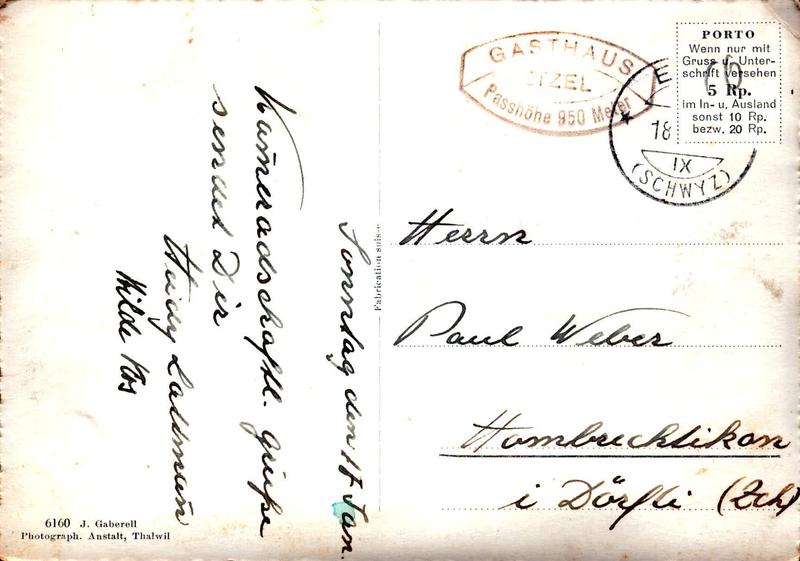 Sonntag den 17 Jan.
Kameradschaftl. Grüße
sendet Dir
Lattmann
Hilde
6160 J. Gaberell
Photograph. Anstalt, Thalwil
Fabrication suisse
GASTHAUS
ETZEL
Passhöhe 950 Meter
E
18
IX
(SCHWYZ)
PORTO
Wenn nur mit
Gruss u. Unter-
schrift versehen
5 Rp.
im In- u. Ausland
sonst 10 Rp.
bezw. 20 Rp.
Herrn
Paul Weber
Hombrechtikon
i Dörfli (Zch)